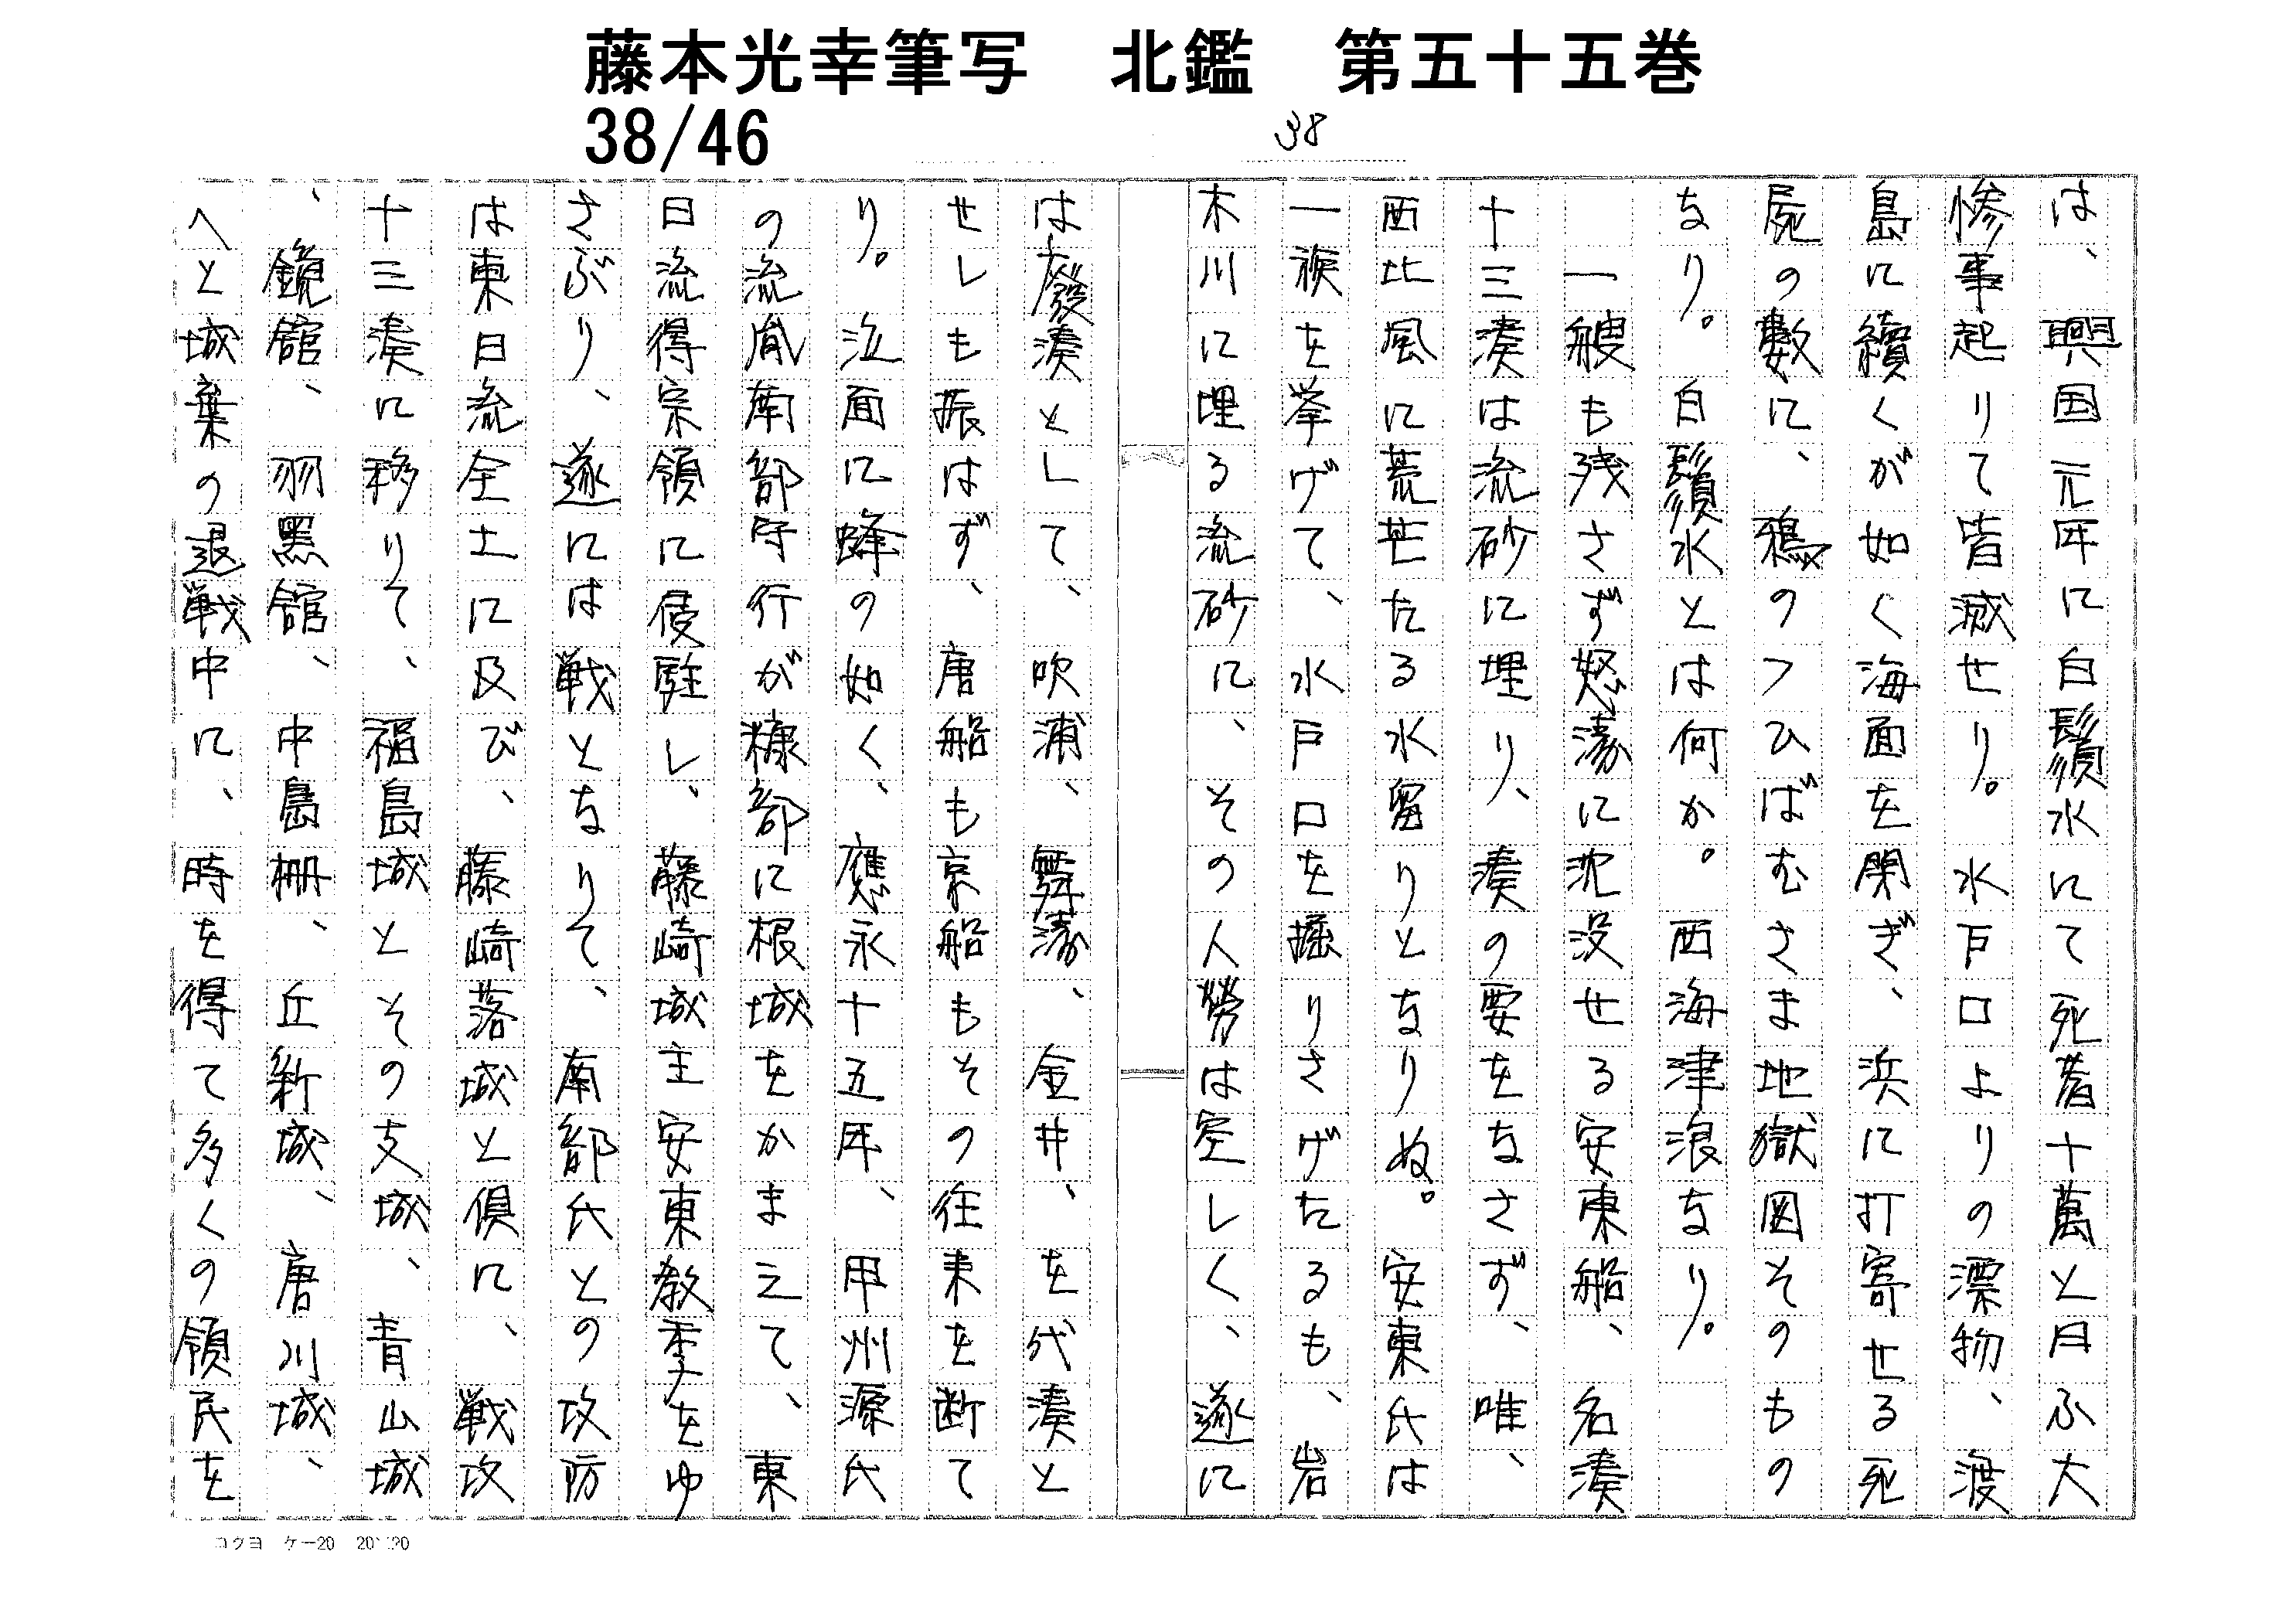 藤本光幸筆写　北鑑　第五十五巻
38/46
38
は、興国元年に白鬚水にて死者十萬と月ふ大
惨事起りて皆滅せり。水戸口よりの漂物、渡
島に續くが如く海面を閉ぎ、浜に打寄せる死
屍の數に、鴉のついばむさま地獄図そのもの
なり。白鬚水とは何か。西海津浪なり。
一艘も残さず怒濤に沈没せる安東船、名湊
十三湊は流砂に埋り、湊の要をなさず、唯、
西北風に荒芒たる水留りとなりぬ。安東氏は
一族を挙げて、水戸口を掘りさげたるも、岩
木川に埋る流砂に、その人勞は空しく、遂に
は廢湊として、吹浦、舞濤、金井、を代湊と
せしも振はず、唐船も京船もその往来を断て
り。泣面に蜂の如く、應永十五年、甲州源氏
の流胤南部守行が糠部に根城をかまえて、東
日流得宗領に侵駐し、藤崎城主安東教季をゆ
さぶり、遂には戦となりて、南部氏との攻防
は東日流全土に及び、藤崎落城と倶に、戦攻
十三湊に移りて、福島城とその支城、青山城
、鏡舘、羽黒舘、中島柵、丘新城、唐川城、
へと城棄の退戦中に、時を得て多くの領民を
コクヨ　ケー20　20×20